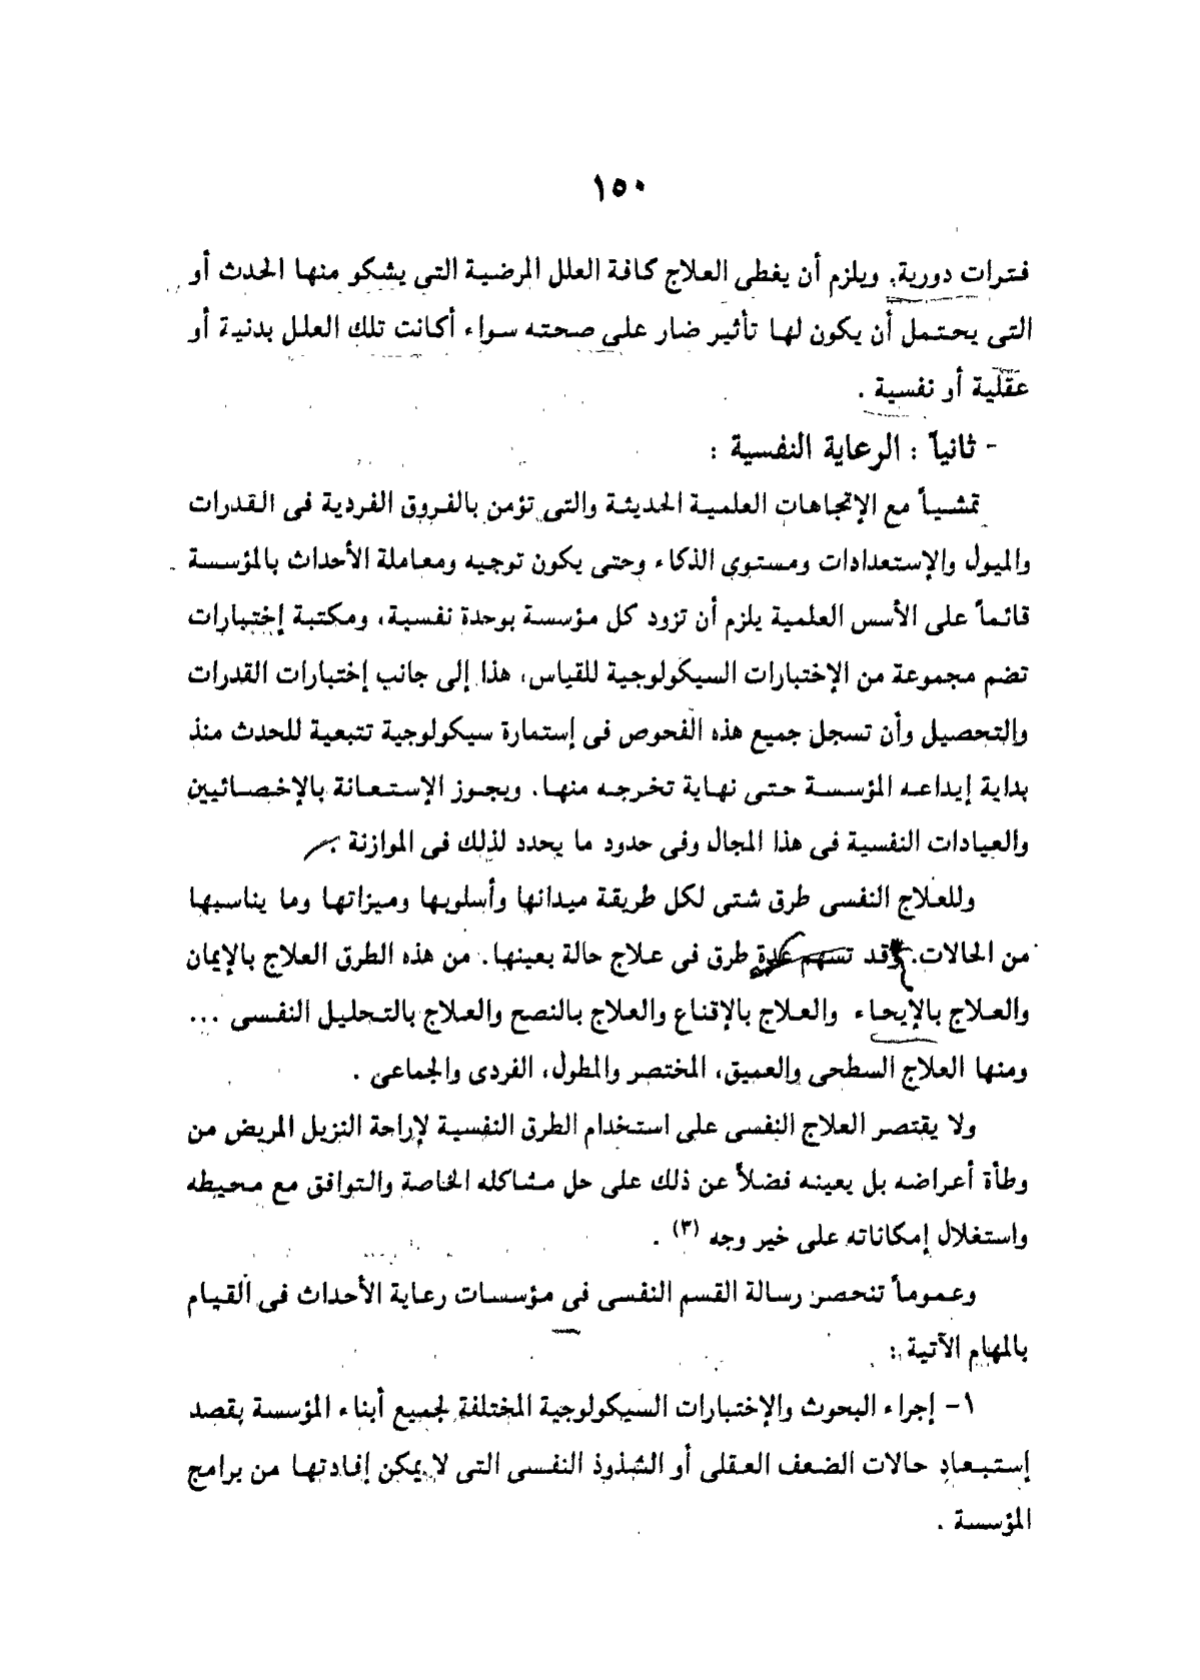 ١٥٠
فترات دورية. ويلزم أن يغطى العلاج كافة العلل المرضية التى يشكو منها الحدث أو
التى يحتمل أن يكون لها تأثير ضار على صحته سواء أكانت تلك العلل بدنية أو
عقلية أو نفسية .
- ثانياً : الرعاية النفسية :
تمشياً مع الإتجاهات العلمية الحديثة والتى تؤمن بالفروق الفردية فى القدرات
والميول والإستعدادات ومستوى الذكاء وحتى يكون توجيه ومعاملة الأحداث بالمؤسسة
قائماً على الأسس العلمية يلزم أن تزود كل مؤسسة بوحدة نفسية، ومكتبة إختبارات
تضم مجموعة من الإختبارات السيكولوجية للقياس، هذا إلى جانب إختبارات القدرات
والتحصيل وأن تسجل جميع هذه الفحوص فى إستمارة سيكولوجية تتبعية للحدث منذ
بداية إيداعه المؤسسة حتى نهاية تخرجه منها. ويجوز الإستعانة بالإخصائيين
والعيادات النفسية فى هذا المجال وفى حدود ما يحدد لذلك فى الموازنة .
وللعلاج النفسى طرق شتى لكل طريقة ميدانها وأسلوبها وميزاتها وما يناسبها
من الحالات. وقد تسهم عدة طرق فى علاج حالة بعينها. من هذه الطرق العلاج بالإيمان
والعلاج بالإيحاء والعلاج بالإقناع والعلاج بالنصح والعلاج بالتحليل النفسى ...
ومنها العلاج السطحى والعميق، المختصر والمطول، الفردى والجماعى .
ولا يقتصر العلاج النفسى على استخدام الطرق النفسية لإراحة النزيل المريض من
وطأة أعراضه بل يعينه فضلاً عن ذلك على حل مشاكله الخاصة والتوافق مع محيطه
واستغلال إمكاناته على خير وجه (٣) .
وعموماً تنحصر رسالة القسم النفسى فى مؤسسات رعاية الأحداث فى القيام
بالمهام الآتية :
١- إجراء البحوث والإختبارات السيكولوجية المختلفة لجميع أبناء المؤسسة بقصد
إستبعاد حالات الضعف العقلى أو الشذوذ النفسى التى لا يمكن إفادتها من برامج
المؤسسة .